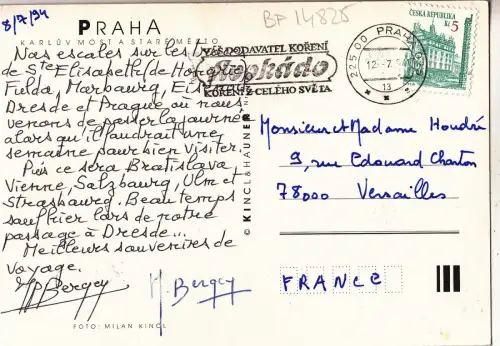 8/7/94
PRAHA
KARLŮV MOST A STARÉ MĚSTO
Nos escales sur les
de Ste Elisabeth (de Hongrie
Fulda, Marbourg, Eis
Dresde et Prague où nous
venons de passer la journée
alors qu'il faudrait une
semaine pour bien visiter.
Puis ce sera Bratislava
Vienne, Salzbourg, Ulm et
Strasbourg. Beau temps
sauf hier lors de notre
passage à Dresde...
Meilleurs souvenirs de
voyage.
Bergey
M. Bergey
FOTO: MILAN KINCL
© KINCL & HAUNER
BF 14825
VÁŠ DODAVATEL KOŘENÍ
KOŘENÍ Z CELÉHO SVĚTA
PRAHA
12.-7.
13
ČESKÁ REPUBLIKA
Kč 5
Monsieur et Madame Houdré
9, rue Edouard Charton
78000 Versailles
FRANCE